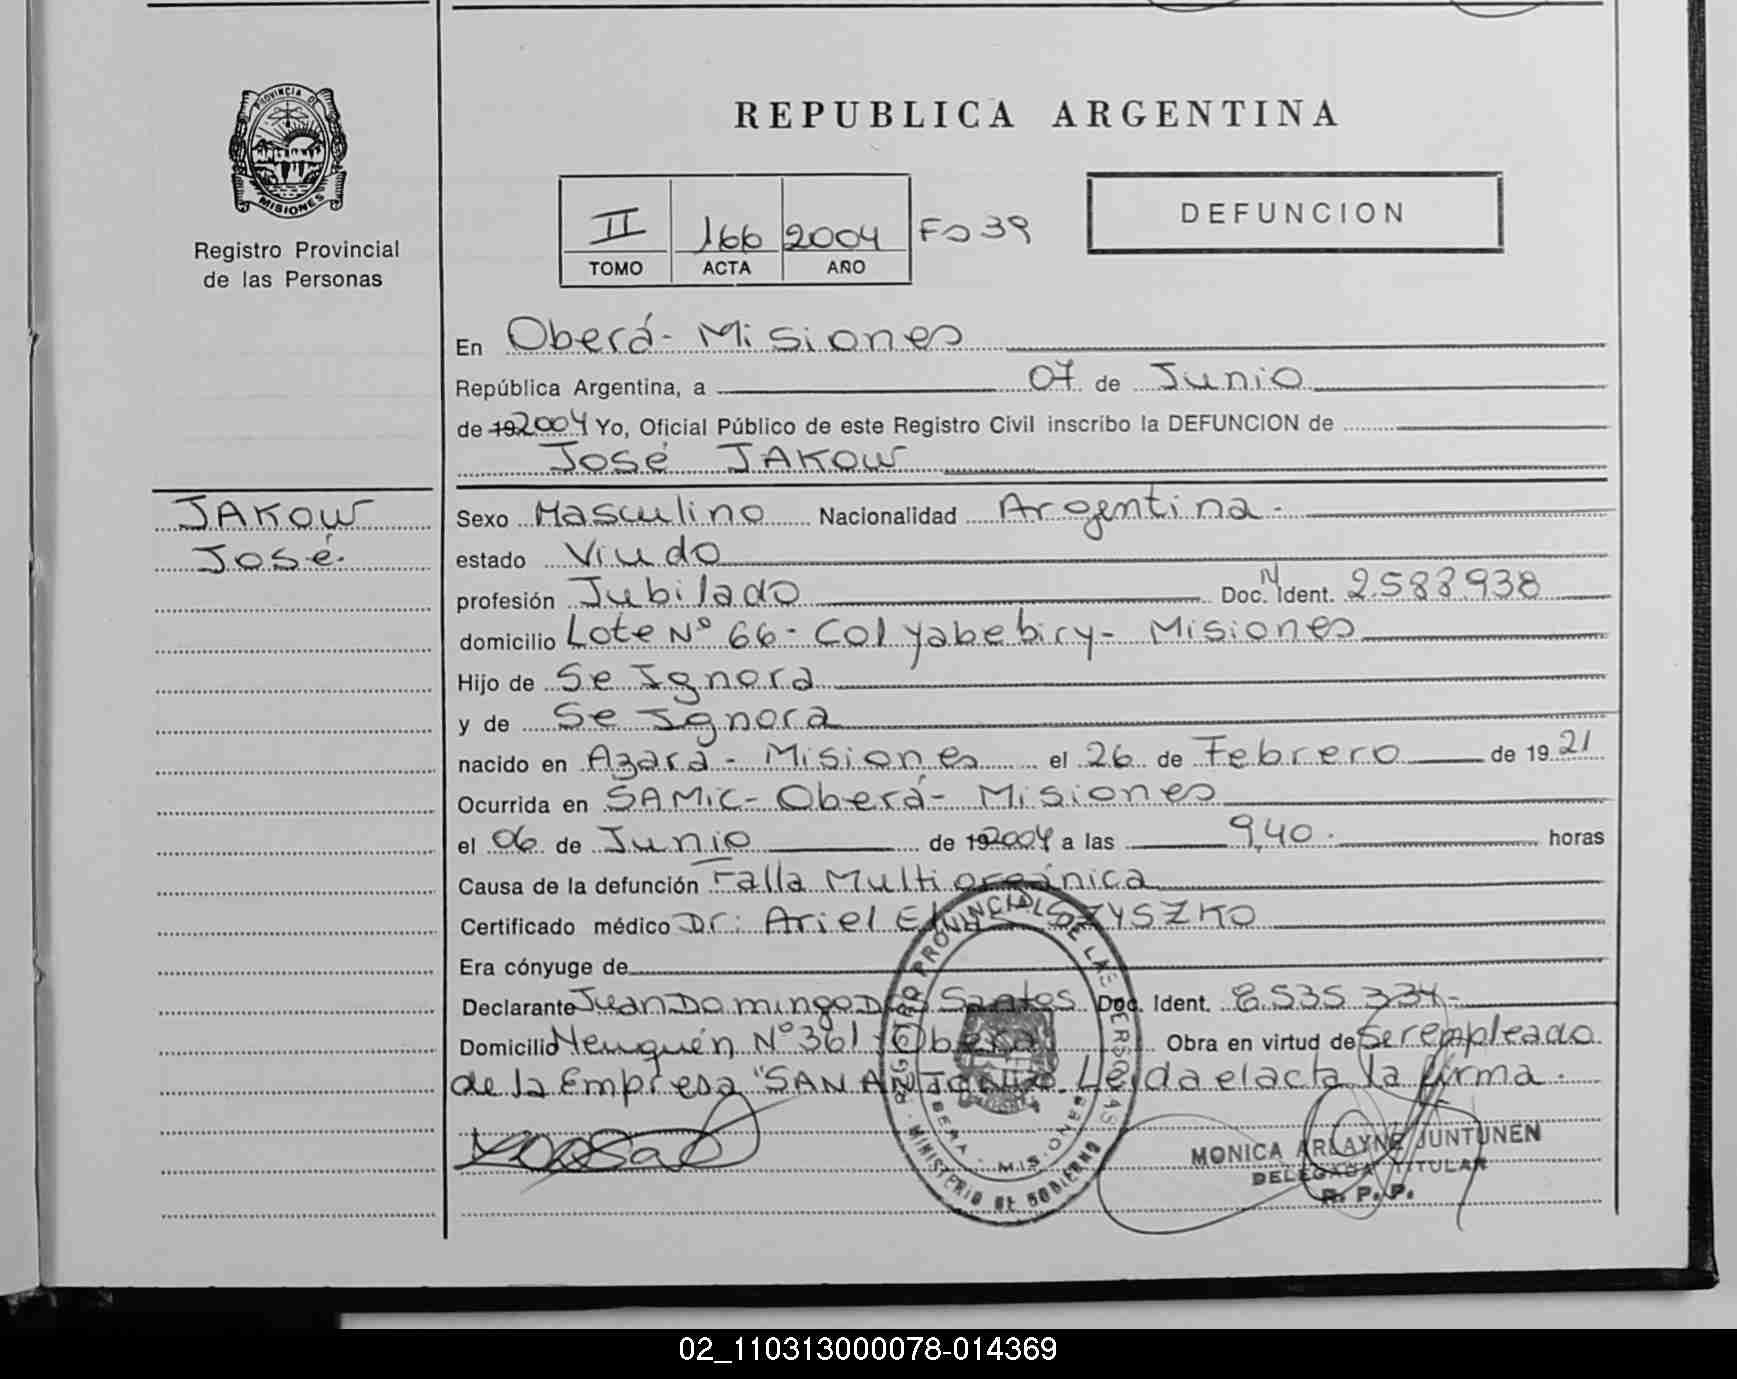 REPUBLICA ARGENTINA
PROVINCIA DE MISIONES
Registro Provincial
de las Personas
II 166 2004 Fo 39
TOMO ACTA AÑO
DEFUNCION
En Oberá - Misiones
República Argentina, a 07 de Junio
de 192004 Yo, Oficial Público de este Registro Civil inscribo la DEFUNCION de
José JAKOW
JAKOW
José.
Sexo Masculino Nacionalidad Argentina.
estado Viudo
profesión Jubilado Doc. N Ident. 2.583.938
domicilio Lote Nº 66 - Col Yabebiry - Misiones
Hijo de Se Ignora
y de Se Ignora
nacido en Azara - Misiones el 26 de Febrero de 1921
Ocurrida en SAMIC - Oberá - Misiones
el 06 de Junio de 192004 a las 9,40. horas
Causa de la defunción Falla Multiorgánica
Certificado médico Dr: Ariel
Era cónyuge de
Declarante Juan Domingo Dos Santos Doc. Ident. 8.535.334.-
Domicilio Neuquén Nº 361 - Oberá Obra en virtud de Ser empleado
de la Empresa "SAN ANTONIO. Leida el acta la firma.
REGISTRO PROVINCIAL DE LAS PERSONAS
OBERA - MISIONES
MINISTERIO DE GOBIERNO
MONICA ARLAYNE JUNTUNEN
DELEGADA TITULAR
R. P. P.
02_110313000078-014369